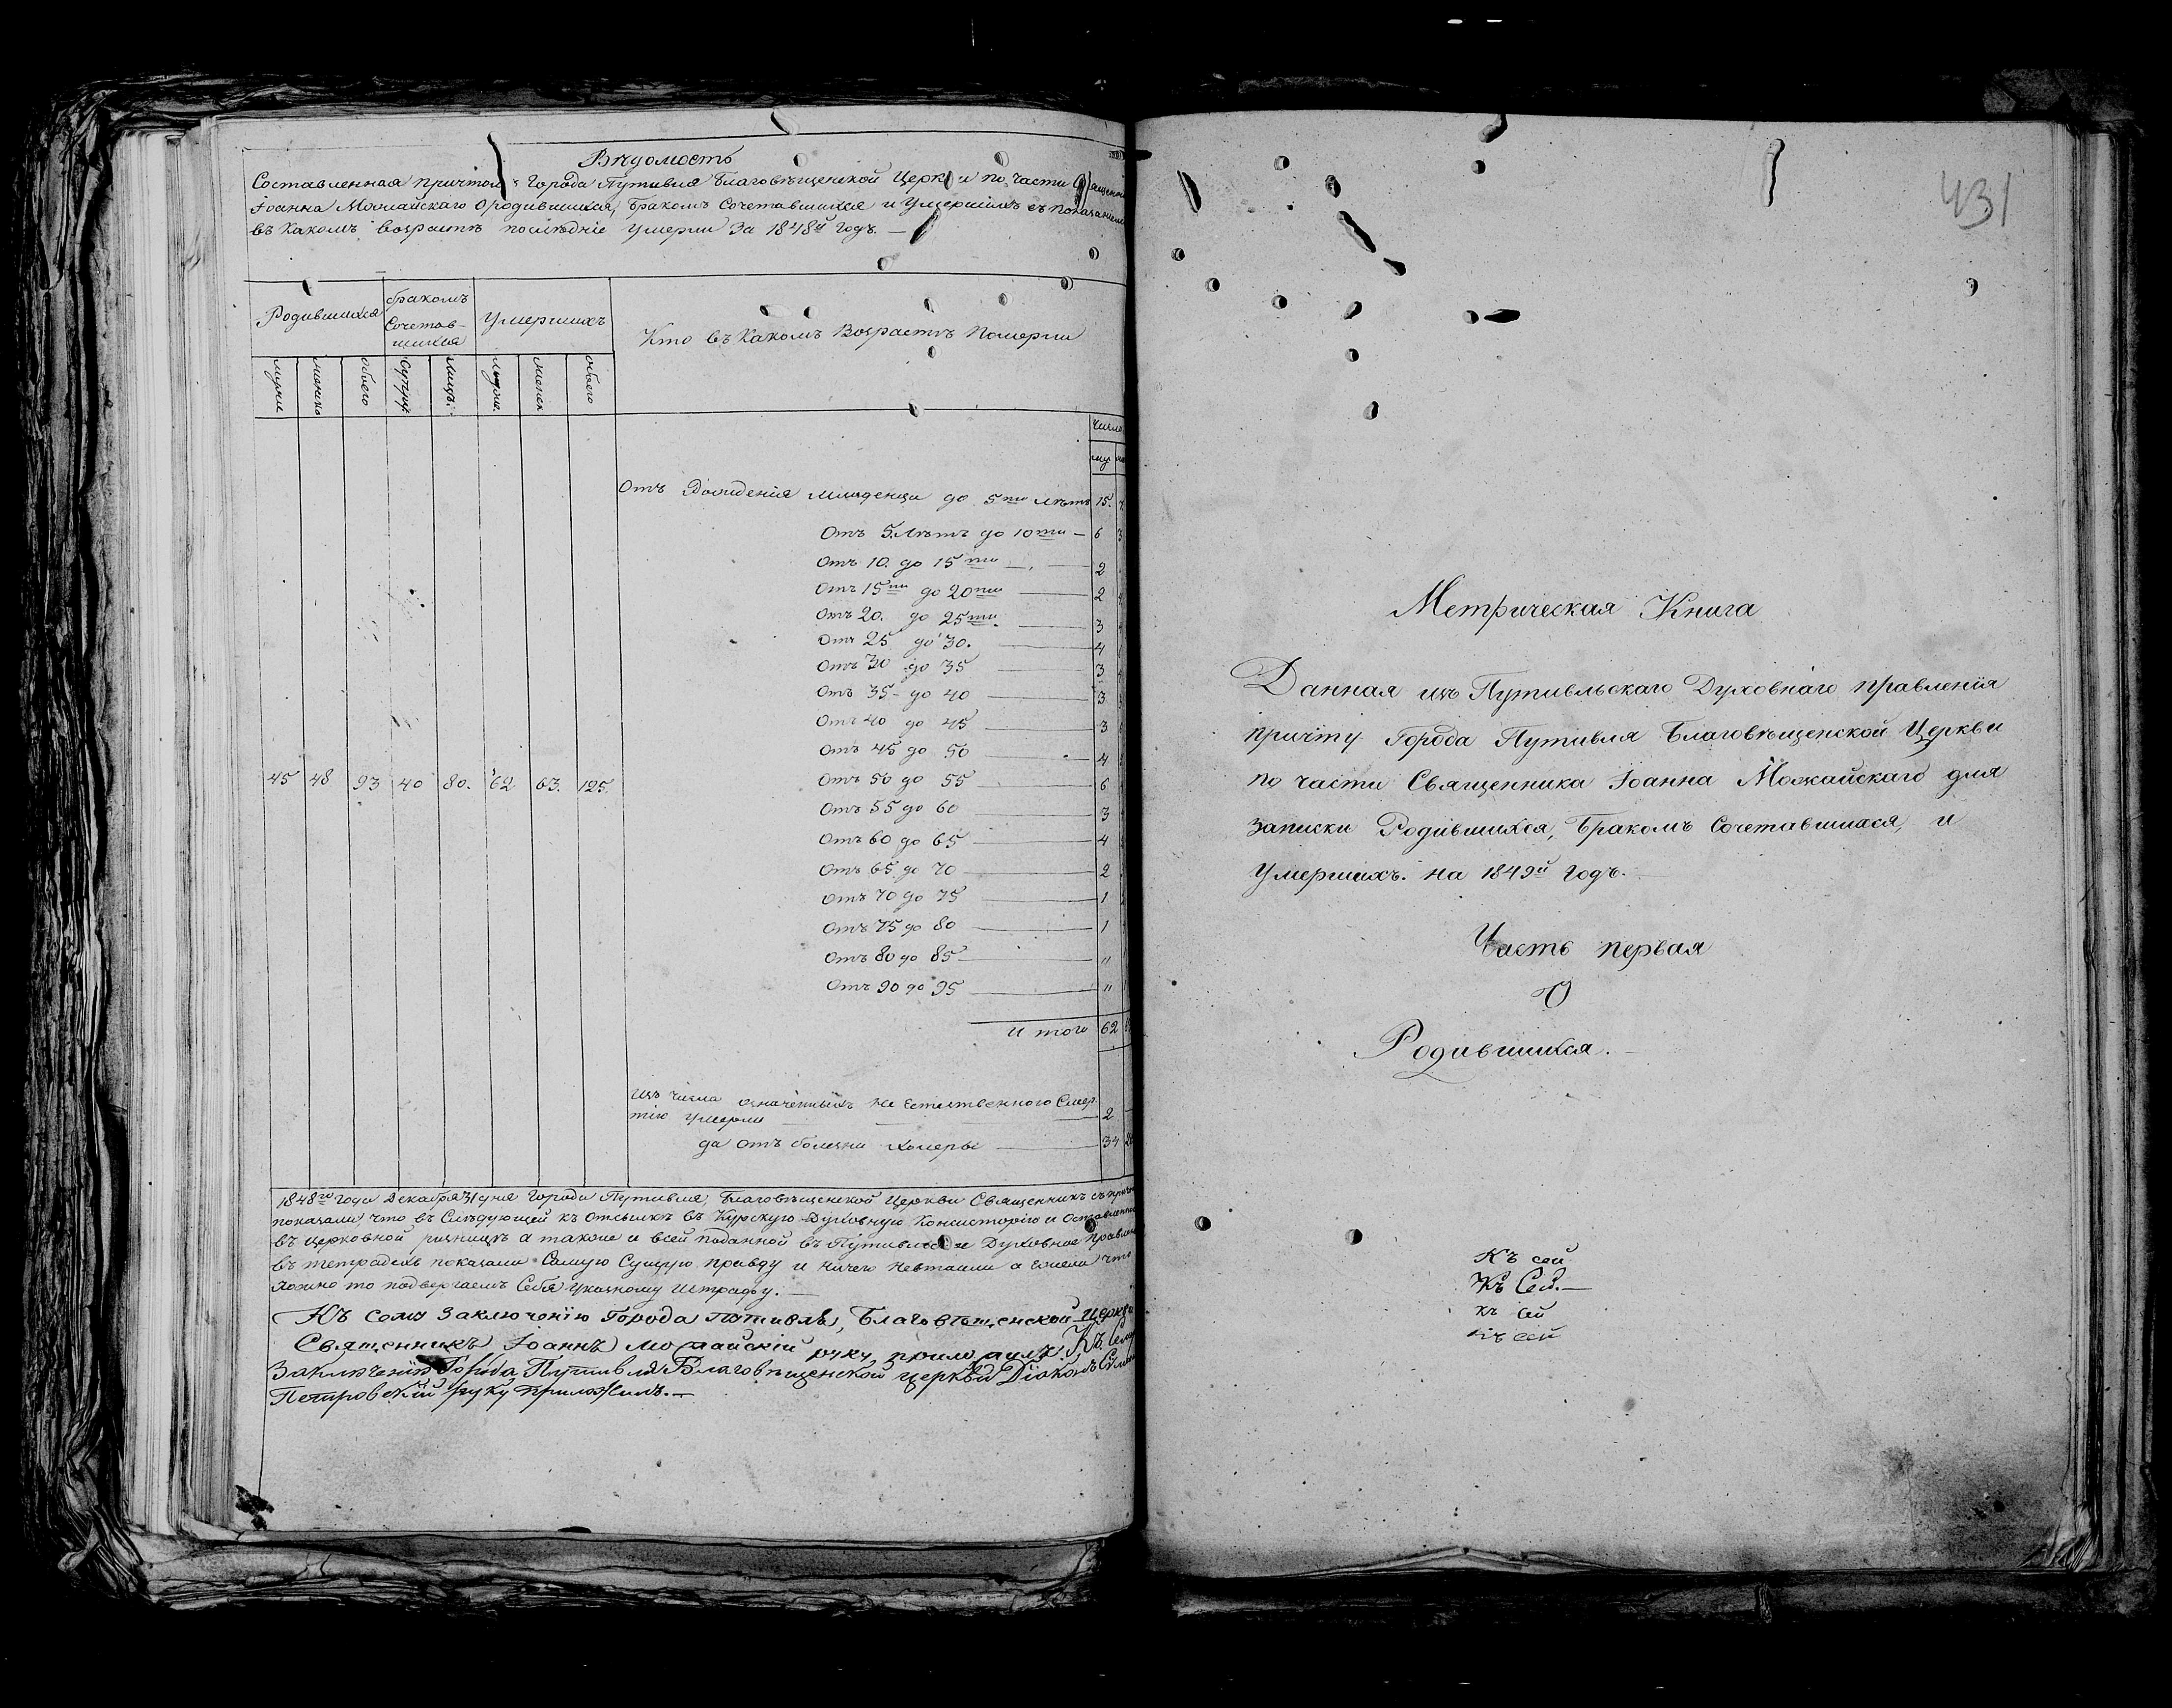 Вѣдомость
Составленная причтомъ Города Путивля Благовѣщенской Церкви по части Священни
Іоанна Можайскаго О родившихся, Бракомъ Сочетавшихся и Умершихъ съ показаніемъ
въ какомъ возрастѣ послѣдніе умерли За 1848й Годъ. —
Родившихся
бракомъ Сочетав-
шихся
Умершихъ
Кто въ Какомъ Возрастѣ Померли
мужск женск обоего Супруж. Лицъ. мужс. женск обоего
Число
муж
Отъ Рожденія младенцы до 5ти лѣтъ 15.
Отъ 5. Лѣтъ до 10ти — 6 3
Отъ 10. до 15ти — 2
Отъ 15ти до 20ти — 2
Отъ 20. до 25ти — 3
Отъ 25 до 30. — 4
Отъ 30 до 35 — 3
Отъ 35 до 40 — 3
Отъ 40 до 45 — 3
Отъ 45 до 50 — 4
45 48 93 40 80. 62 63. 125.
Отъ 50 до 55 — 6
Отъ 55 до 60 — 3
Отъ 60 до 65 — 4
Отъ 65 до 70 — 2
Отъ 70 до 75 — 1
Отъ 75 до 80 — 1
Отъ 80 до 85 — "
Отъ 90 до 95 — "
И того 62
Изъ числа означенныхъ не Естественного Смер-
тію умерли — 2
да отъ болезни холеры — 34
1848го Года Декабря 31 дня Города Путивля, Благовѣщенской Церкви Священникъ съ причт
показали, что въ Слѣдующей къ отсылкѣ въ Курскую Духовную Консисторію и Оставленной
въ церковной ризницѣ а также и всей поданной въ Путивльское Духовное Правлен
въ тетрадехъ показали Самую Сущую правду и ничего неутаили а Ежели что
ложно то подвергаемъ Себя указному Штрафу. —
Къ сему Заключенію Города Путивля, Благовѣщенской Церкви
Священникъ Іоаннъ Можайскій руку приложилъ. Къ Сему
Заключенію Города Путивля Благовѣщенской церкви Діаконъ
Петровскій руку приложилъ. —
431
Метрическая Книга
Данная изъ Путивльскаго Духовнаго правленія
причту Города Путивля Благовѣщенской Церкви
по части Священника Іоанна Можайскаго для
записки Родившихся, Бракомъ Сочетавшихся, и
Умершихъ. на 1849й Годъ.
Часть первая
О
Родившихся. —
Къ сей
Къ Сей. —
къ сей
къ сей